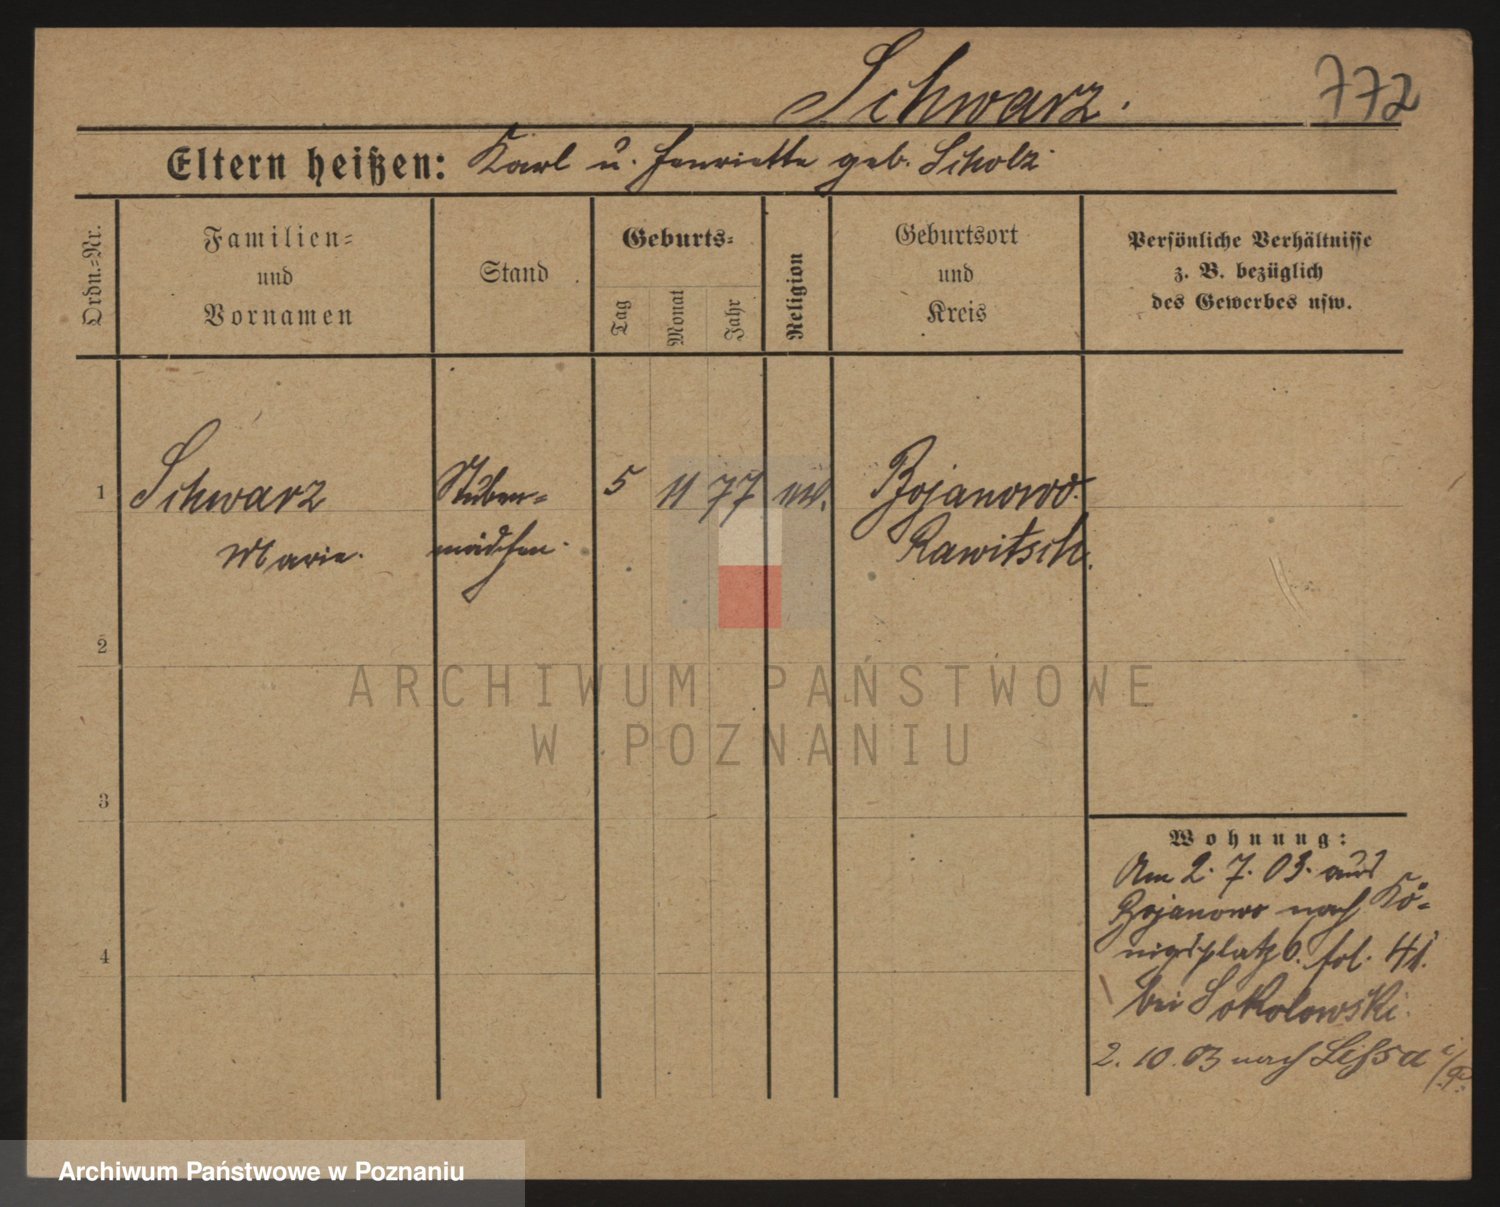 Schwarz.
772
Eltern heißen: Karl u. Henriette geb. Scholz
Ordn.-Nr.
Familien-
und
Vornamen
Stand
Geburts-
Tag
Monat
Jahr
Religion
Geburtsort
und
Kreis
Persönliche Verhältnisse
z. B. bezüglich
des Gewerbes usw.
1 Schwarz Stuben- 5 11 77 ev. Bojanowo.
Marie. mädchen. Rawitsch.
2
ARCHIWUM PAŃSTWOWE
W POZNANIU
3
Wohnung:
Am 2. 7. 03. aus
Bojanowo nach Kö-
4
nigsplatz 6. fol. 41.
bei Sokolowski.
2. 10. 03 nach Lissa i/P.
Archiwum Państwowe w Poznaniu